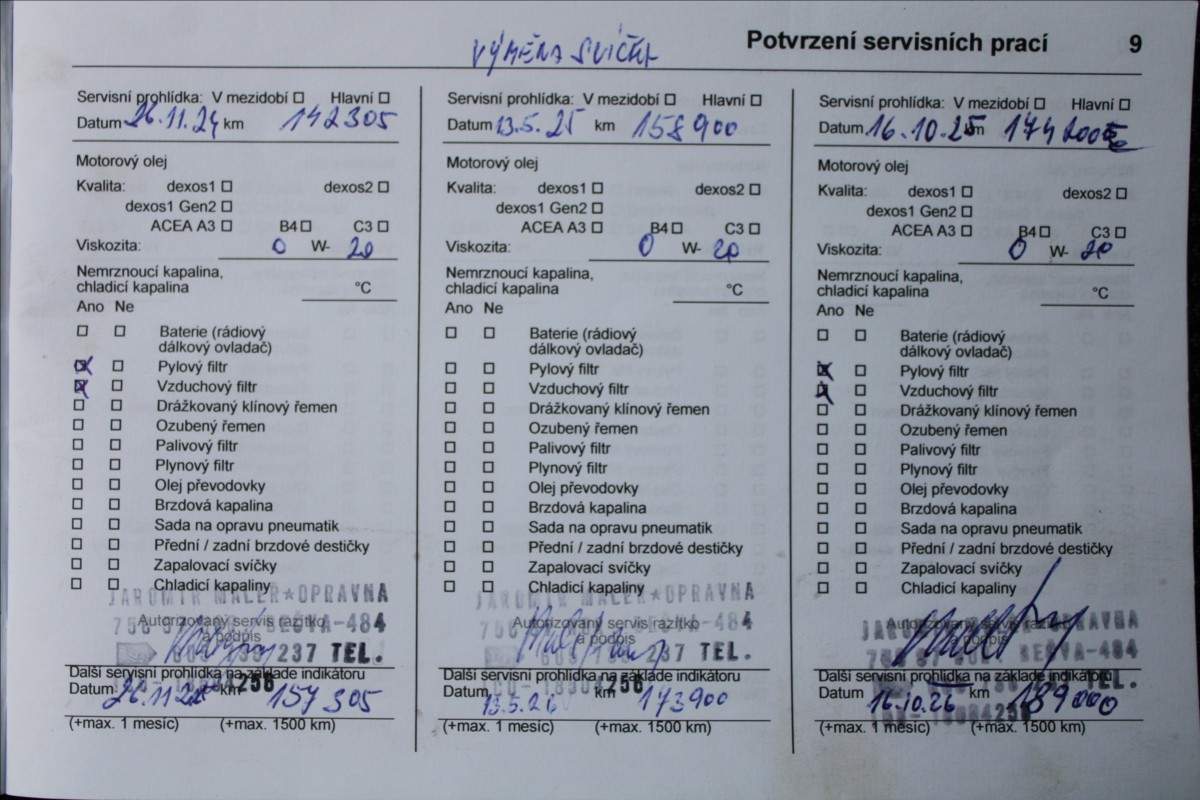 VÝMĚNA SVÍČEK
Potvrzení servisních prací 9
Servisní prohlídka: V mezidobí Hlavní
Datum 26.11.24 km 142305
Motorový olej
Kvalita: dexos1 dexos2
dexos1 Gen2
ACEA A3 B4 C3
Viskozita: 0 W- 20
Nemrznoucí kapalina,
chladicí kapalina °C
Ano Ne
Baterie (rádiový
dálkový ovladač)
Pylový filtr
Vzduchový filtr
Drážkovaný klínový řemen
Ozubený řemen
Palivový filtr
Plynový filtr
Olej převodovky
Brzdová kapalina
Sada na opravu pneumatik
Přední / zadní brzdové destičky
Zapalovací svíčky
Chladicí kapaliny
JAROMÍR MALER★OPRAVNA
Autorizovaný servis razítko
a podpis
BEČVA-484
237 TEL.
Další servisní prohlídka na základe indikátoru
Datum 26.11.25 km 157305
(+max. 1 mesíc) (+max. 1500 km)
Servisní prohlídka: V mezidobí Hlavní
Datum 13.5.25 km 158900
Motorový olej
Kvalita: dexos1 dexos2
dexos1 Gen2
ACEA A3 B4 C3
Viskozita: 0 W- 20
Nemrznoucí kapalina,
chladicí kapalina °C
Ano Ne
Baterie (rádiový
dálkový ovladač)
Pylový filtr
Vzduchový filtr
Drážkovaný klínový řemen
Ozubený řemen
Palivový filtr
Plynový filtr
Olej převodovky
Brzdová kapalina
Sada na opravu pneumatik
Přední / zadní brzdové destičky
Zapalovací svíčky
Chladicí kapaliny
JAROMÍR MALER★OPRAVNA
Autorizovaný servis razítko
a podpis
237 TEL.
Další servisní prohlídka na základe indikátoru
Datum 13.5.26 km 173900
(+max. 1 mesíc) (+max. 1500 km)
Servisní prohlídka: V mezidobí Hlavní
Datum 16.10.25 km
Motorový olej
Kvalita: dexos1 dexos2
dexos1 Gen2
ACEA A3 B4 C3
Viskozita: 0 W- 20
Nemrznoucí kapalina,
chladicí kapalina °C
Ano Ne
Baterie (rádiový
dálkový ovladač)
Pylový filtr
Vzduchový filtr
Drážkovaný klínový řemen
Ozubený řemen
Palivový filtr
Plynový filtr
Olej převodovky
Brzdová kapalina
Sada na opravu pneumatik
Přední / zadní brzdové destičky
Zapalovací svíčky
Chladicí kapaliny
OPRAVNA
Autorizovaný servis razítko
a podpis
BEČVA-484
TEL.
Další servisní prohlídka na základe indikátoru
Datum 16.10.26 km 189000
(+max. 1 mesíc) (+max. 1500 km)